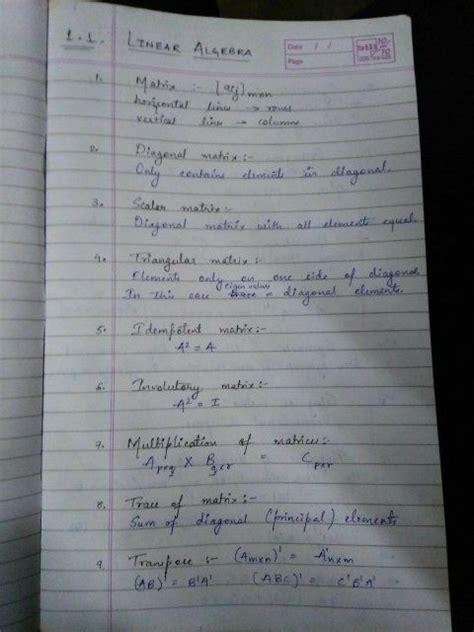 1.1. LINEAR ALGEBRA
Date / /
Page
1. Matrix :- [aij]mxn
horizontal lines → rows
vertical lines → columns
2. Diagonal matrix:-
Only contains elements in diagonal.
3. Scalar matrix:-
Diagonal matrix with all element equal.
4. Triangular matrix:-
Elements only on one side of diagonal
eigen value
In this case = diagonal elements.
5. Idempotent matrix:-
A² = A
6. Involutory matrix:-
A² = I
7. Multiplication of matrices:-
Apxq X Bqxr = Cpxr
8. Trace of matrix:-
Sum of diagonal (principal) elements
9. Transpose :- (Amxn)' = A'nxm
(AB)' = B'A' (ABC)' = C'B'A'